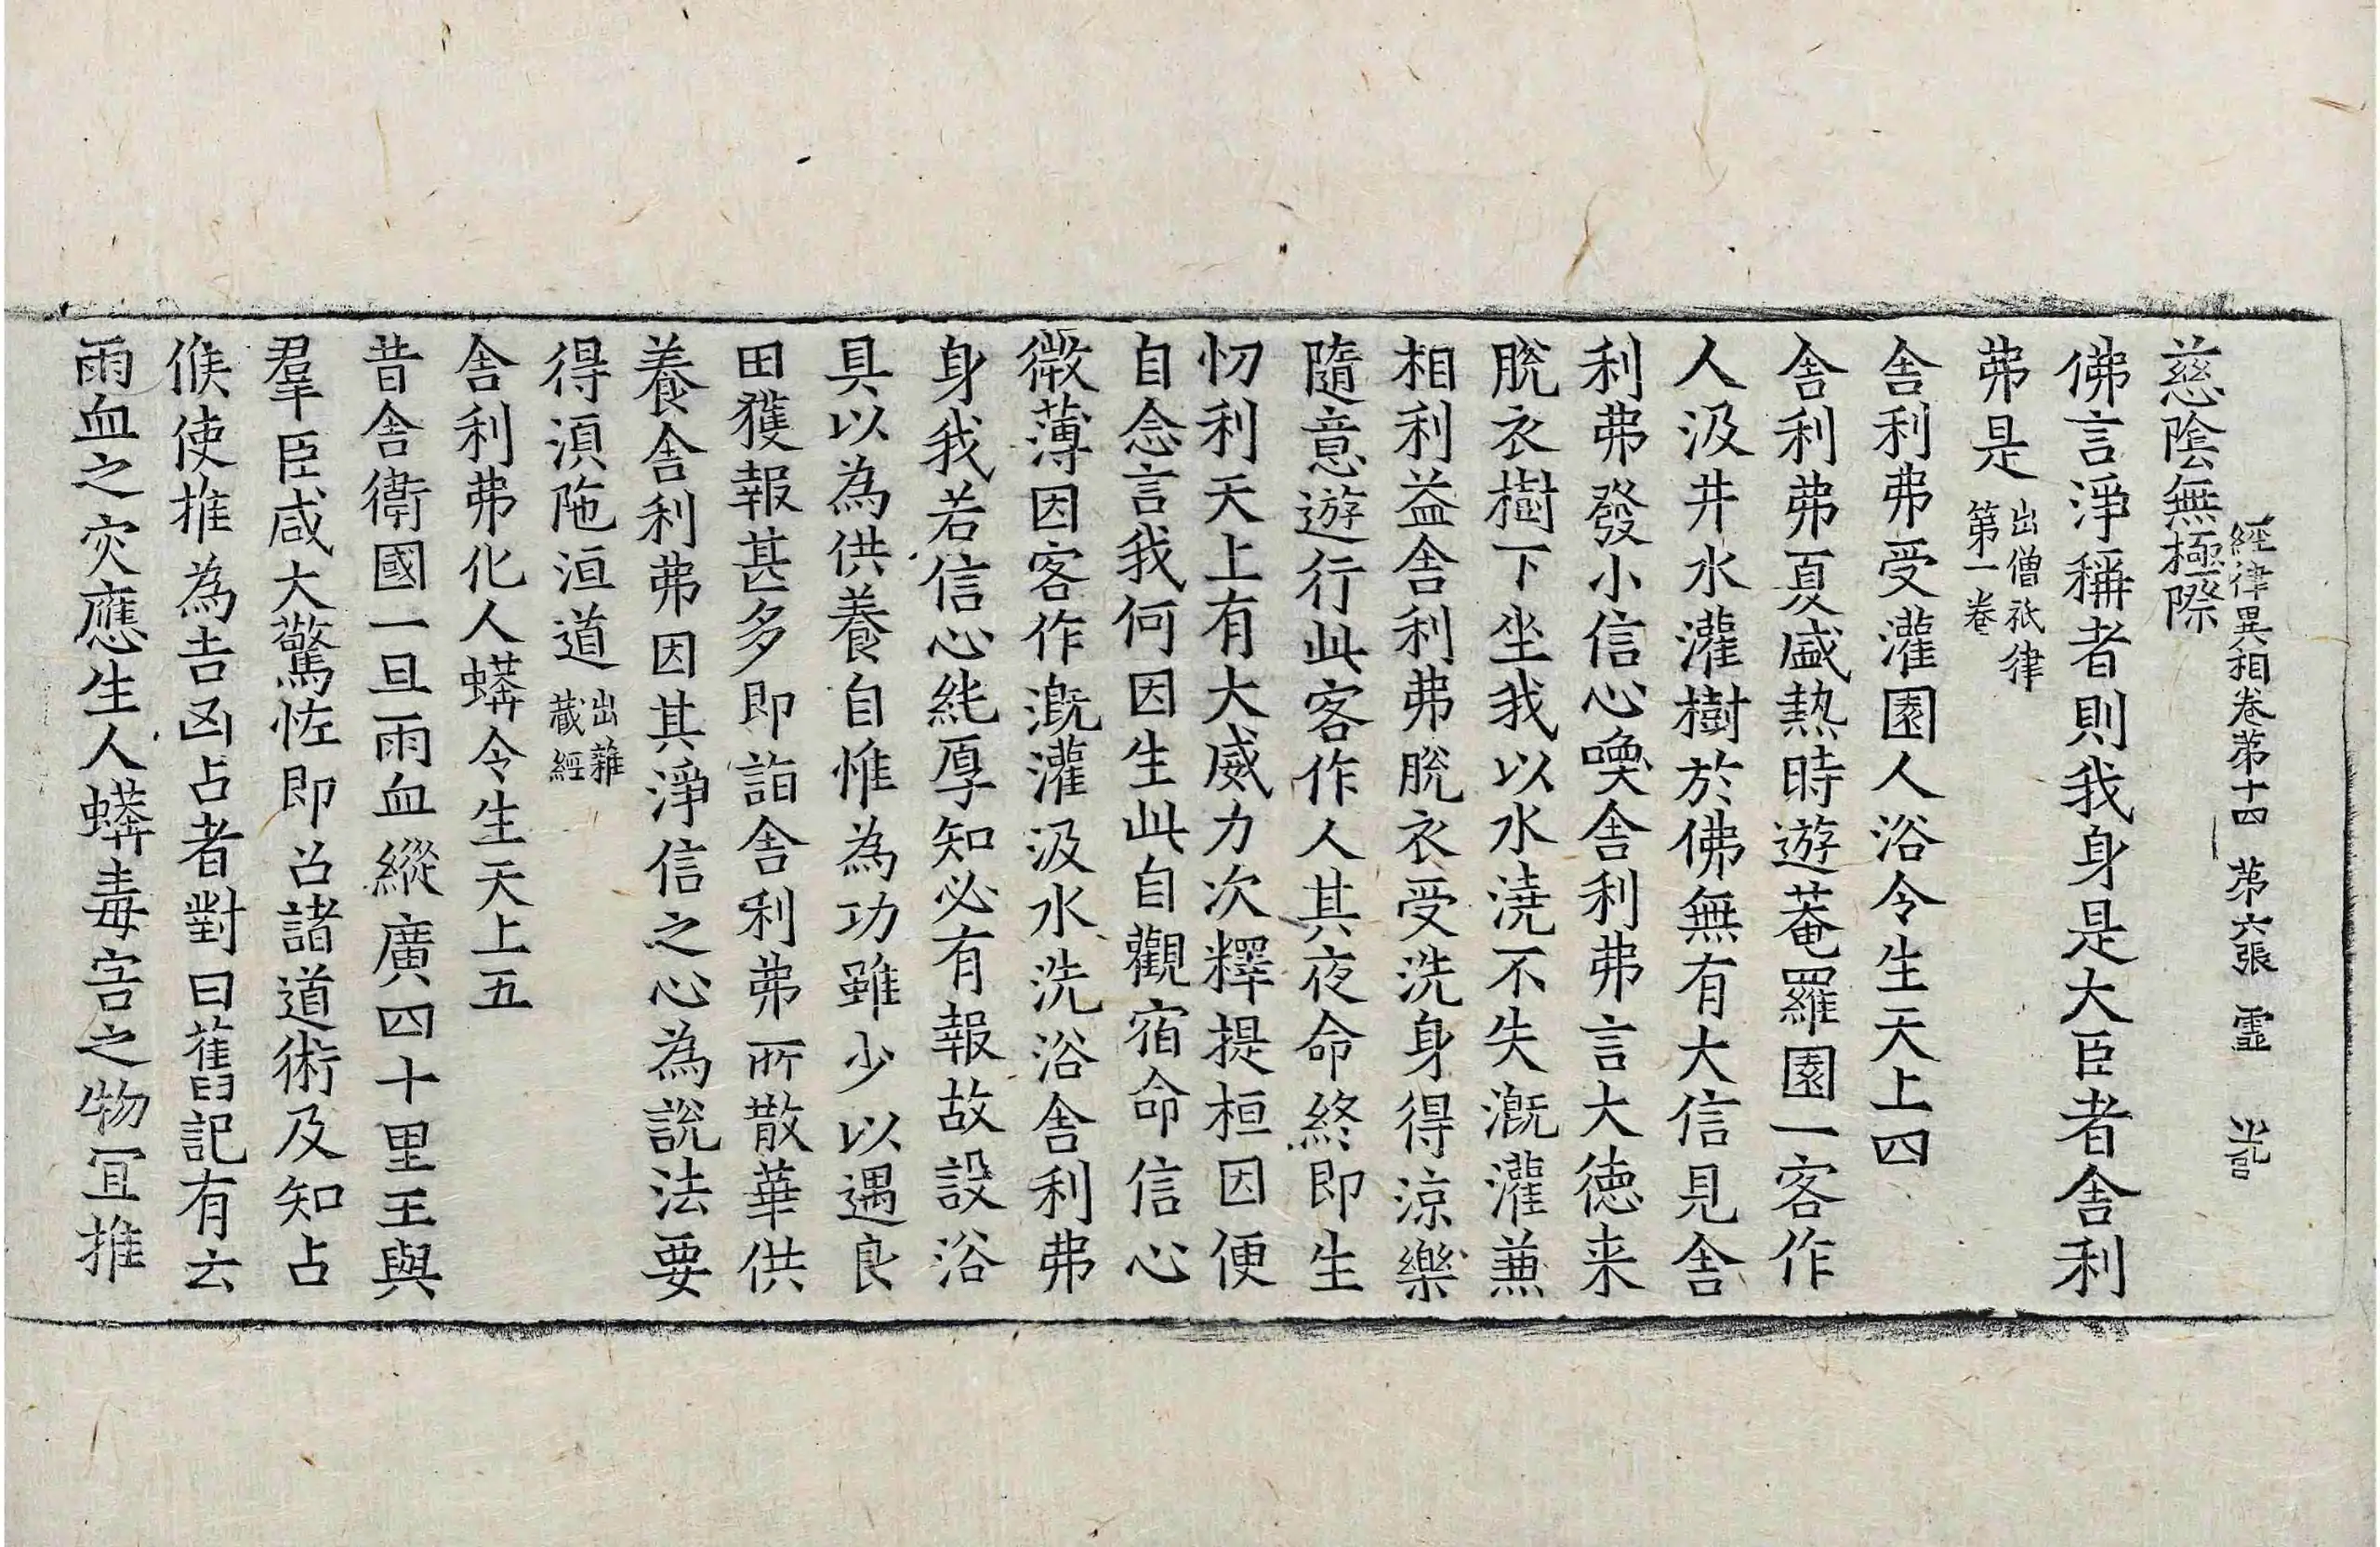 經律異相卷苐十四　苐六張　霊
慈陰無極際
佛言淨稱者則我身是大臣者舎利
弗是出僧祇律第一卷
舎利弗受灌園人浴令生天上四
舎利弗夏盛熱時遊菴羅園一客作
人汲井水灌樹於佛無有大信見舎
利弗發小信心喚舎利弗言大徳来
脫衣樹下坐我以水澆不失漑灌兼
相利益舎利弗脫衣受洗身得涼樂
隨意遊行此客作人其夜命終即生
忉利天上有大威力次釋提桓因便
自念言我何因生此自觀宿命信心
微薄因客作漑灌汲水洗浴舎利弗
身我若信心純厚知必有報故設浴
具以為供養自惟為功雖少以遇良
田獲報甚多即詣舎利弗所散華供
養舎利弗因其淨信之心為說法要
得湏陁洹道出雜藏經
舎利弗化人蟒令生天上五
昔舎衛國一旦雨血縱廣四十里王與
羣臣咸大驚恠即召諸道術及知占
候使推為吉凶占者對曰舊記有云
雨血之灾應生人蟒毒害之物冝推